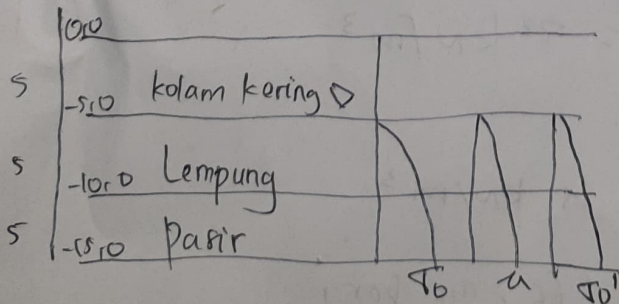 0,0
5
-5,0 kolam kering ▽
5
-10,0 Lempung
5
-15,0 Pasir
σ0 u σ0'